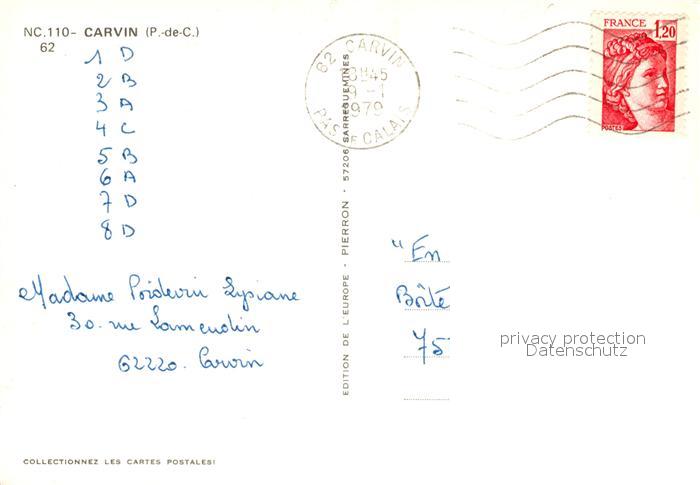 NC.110- CARVIN (P.-de-C.)
62
1 D
2 B
3 A
4 C
5 B
6 A
7 D
8 D
Madame Poidevin Lysiane
30. rue Lamendin
62220. Carvin
COLLECTIONNEZ LES CARTES POSTALES!
EDITION DE L'EUROPE - PIERRON - 57206 SARREGUEMINES
62 CARVIN
13H45
9 -1
1979
PAS DE CALAIS
FRANCE 1,20
POSTES
" En
Boîte
75
privacy protection
Datenschutz